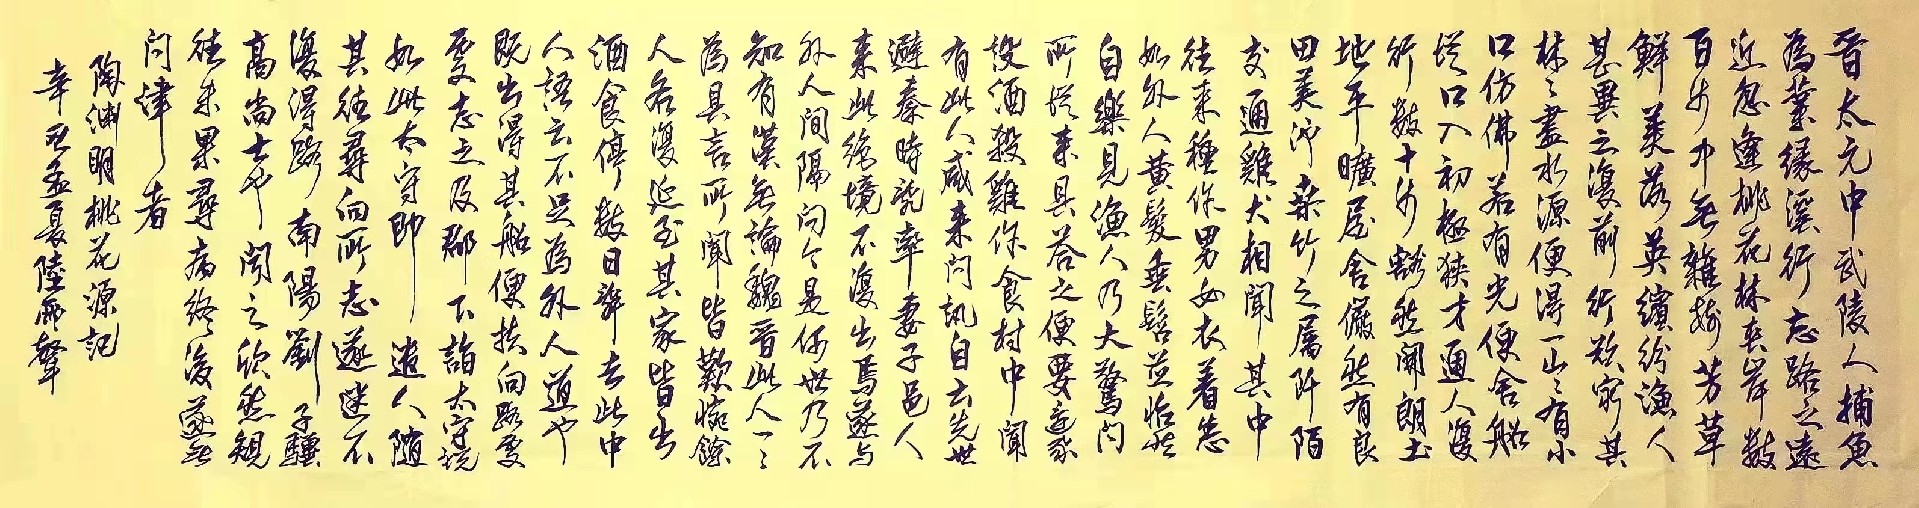 晋太元中武陵人捕魚
為業缘溪行忘路之遠
近忽逢桃花林夹岸數
百步中無雜树芳草
鮮美落英繽纷漁人
甚異之復前行欲窮其
林林盡水源便得一山山有小
口仿佛若有光便舍船
從口入初極狹才通人復
行數十步豁然開朗土
地平曠屋舍儼然有良
田美池桑竹之屬阡陌
交通雞犬相聞其中
往来種作男女衣着悉
如外人黄髮垂髫並怡然
自樂見漁人乃大驚问
所從来具答之便要還家
设酒殺雞作食村中聞
有此人咸来问訊自云先世
避秦時乱率妻子邑人
来此絶境不復出焉遂与
外人间隔问今是何世乃不
知有漢無論魏晋此人一一
為具言所聞皆歎惋餘
人各復延至其家皆出
酒食停數日辞去此中
人語云不足為外人道也
既出得其船便扶向路處
處志之及郡下詣太守说
如此太守即遣人随
其往尋向所志遂迷不
復得路南陽劉子驥
高尚士也聞之欣然規
往未果尋病终後遂無
问津者
陶渊明桃花源記
辛丑孟夏陸雨聲